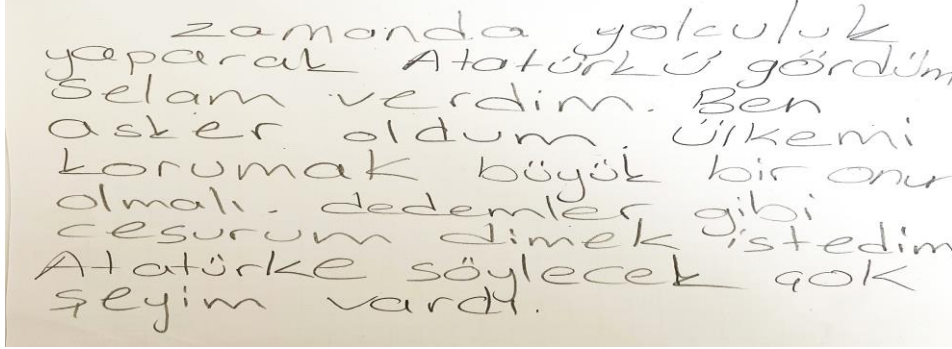 zamanda yolculuk
yaparak Atatürkü gördüm
Selam verdim. Ben
asker oldum ülkemi
korumak büyük bir onur
olmalı. dedemler gibi
cesurum dimek istedim
Atatürke söylecek çok
şeyim vardı.